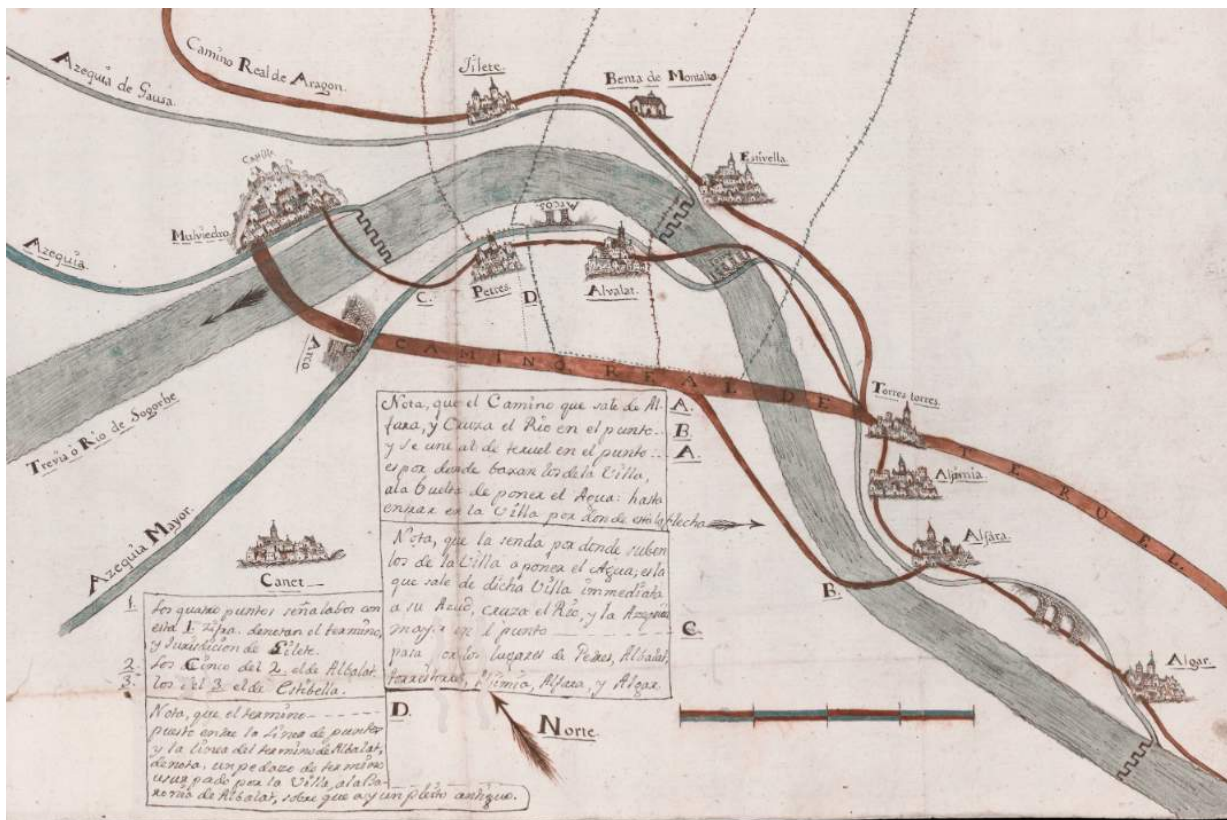 Camino Real de Aragon.
Azequia de Gausa.
Jilete.
Benta de Montalto
Estivella.
Mulviedro
Azequia.
Arcos.
C.
Petres.
D.
Alvalat.
Arco
CAMINO REAL DE TERUEL.
Torres torres.
Alfimia.
Alfára.
B.
Algar.
Trevia ò Rio de Sogorbe
Azequia Mayor.
Canet
Nota, que el Camino que sale de Al-
fara, y Cruza el Rio en el punto
y se une al de teruel en el punto
es por donde baxan los de la Villa,
a la buelta de poner el Agua: hasta
entrar en la Villa por donde està la flecha
A.
B.
A.
Nota, que la senda por donde suben
los de la Villa à poner el Agua; es la
que sale de dicha Villa immediata
a su Azud, cruza el Rio, y la Azequia
mayor en el punto
C.
pasa por los lugares de Petres, Albalat,
torrestorres, Alfimia, Alfara, y Algar.
1. Los quatro puntos señalados con
esta 1. Zifra. denotan el termino,
y Jurisdicion de Gilete.
2. Los Cinco del 2. el de Albalat.
3. los del 3. el de Estibella.
Nota, que el termino
D.
puesto entre la linea de puntos
y la linea del termino de Albalat,
denota, un pedazo de termino
usurpado por la Villa, a la Ba-
ronia de Albalat, sobre que ay un pleito antiguo.
Norte.